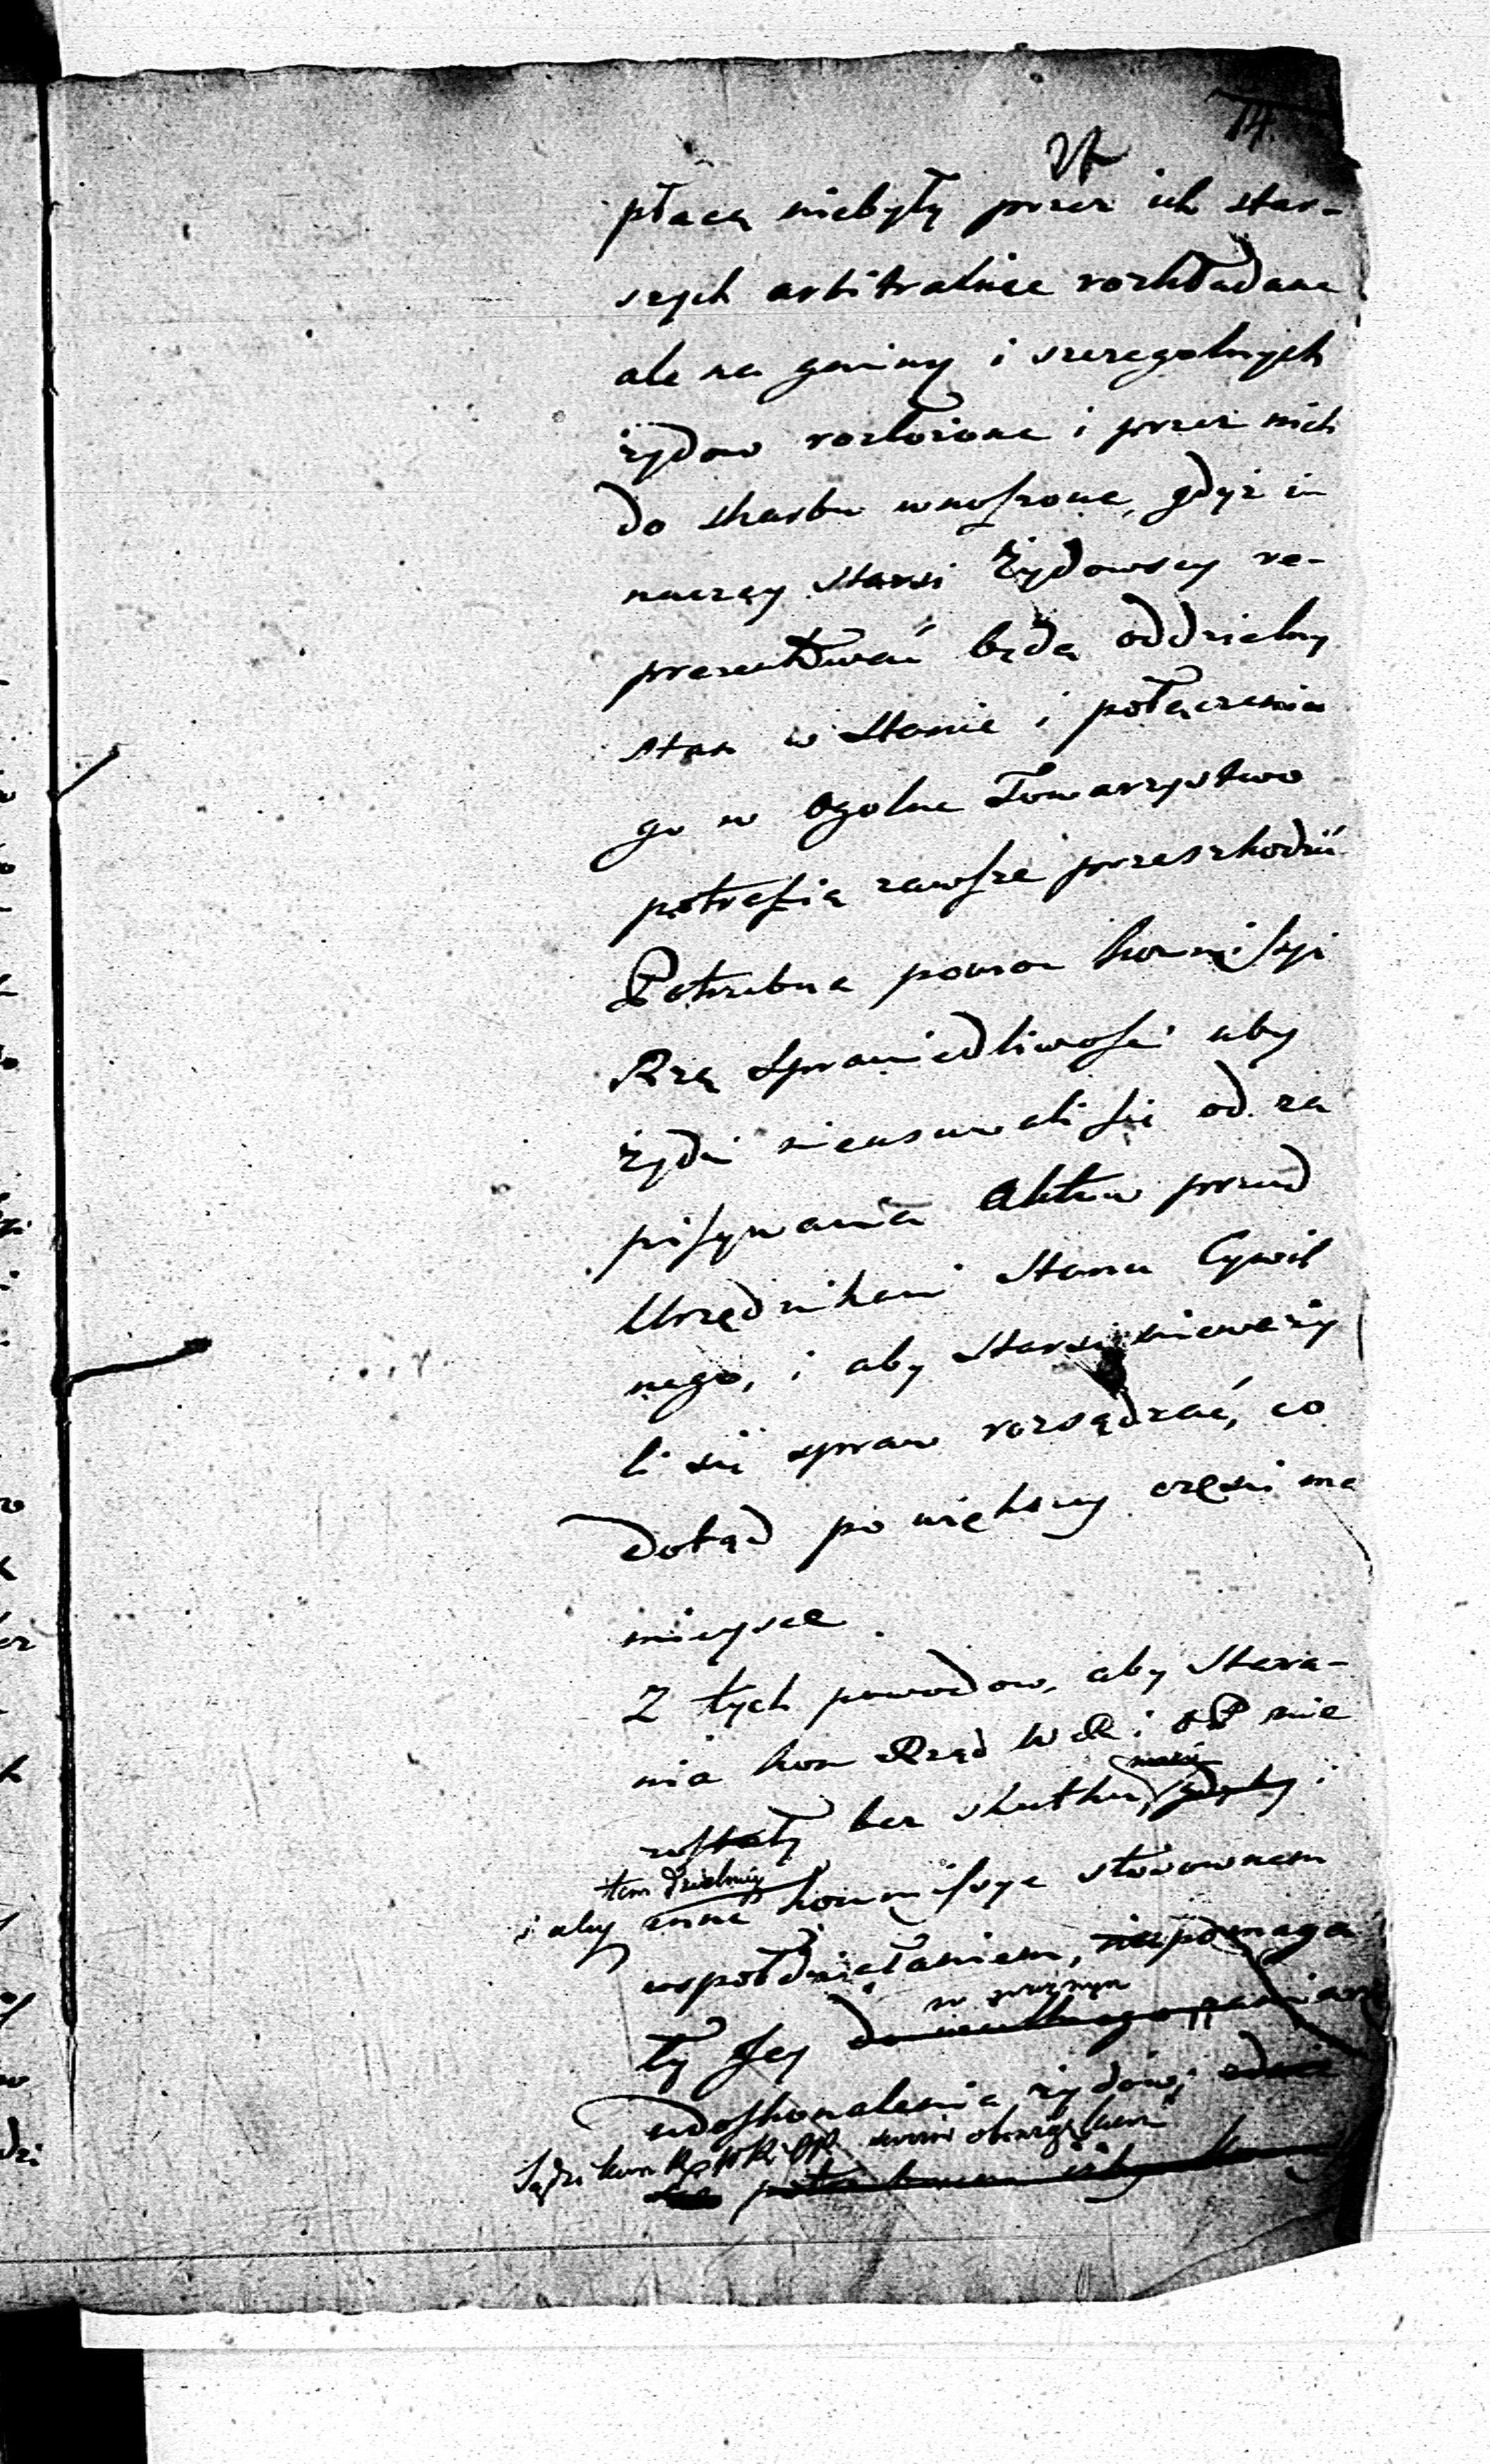 14.
płacą niebyły przez ich star-
szych arbitralnie rozkładane
ale na gminy i szczegolnych
żydow rozłożone i przez nich
do skarbu wnoszone, gdyż in
naczey starsi Żydowscy re-
prezentować będą oddzielny
stan w stanie i połączeniu
go w ogolne Towarzystwo
potrafią zawsze przeszkodzić
Potrzebna pomoc Kommissyi
Rzą Sprawiedliwości aby
żydzi nieusuwali się od za
pisywania Aktow przed
Urzędnikami Stanu Cywil
nego, i aby Starsi nieważy
li się spraw rozsądzać, co
dotąd po większey części ma
mieysce
Z tych powodow, aby Stara-
nia Kom Rząd W R i OP nie
zostały bez skutku, i
tem dzielniey
i aby inne Kommissye stosownem
wspołdziałaniem, pomaga
w ważnym
ły Jey do zamiaru
udoskonalenia żydów;
Sądzi Kom Rz W R i OP